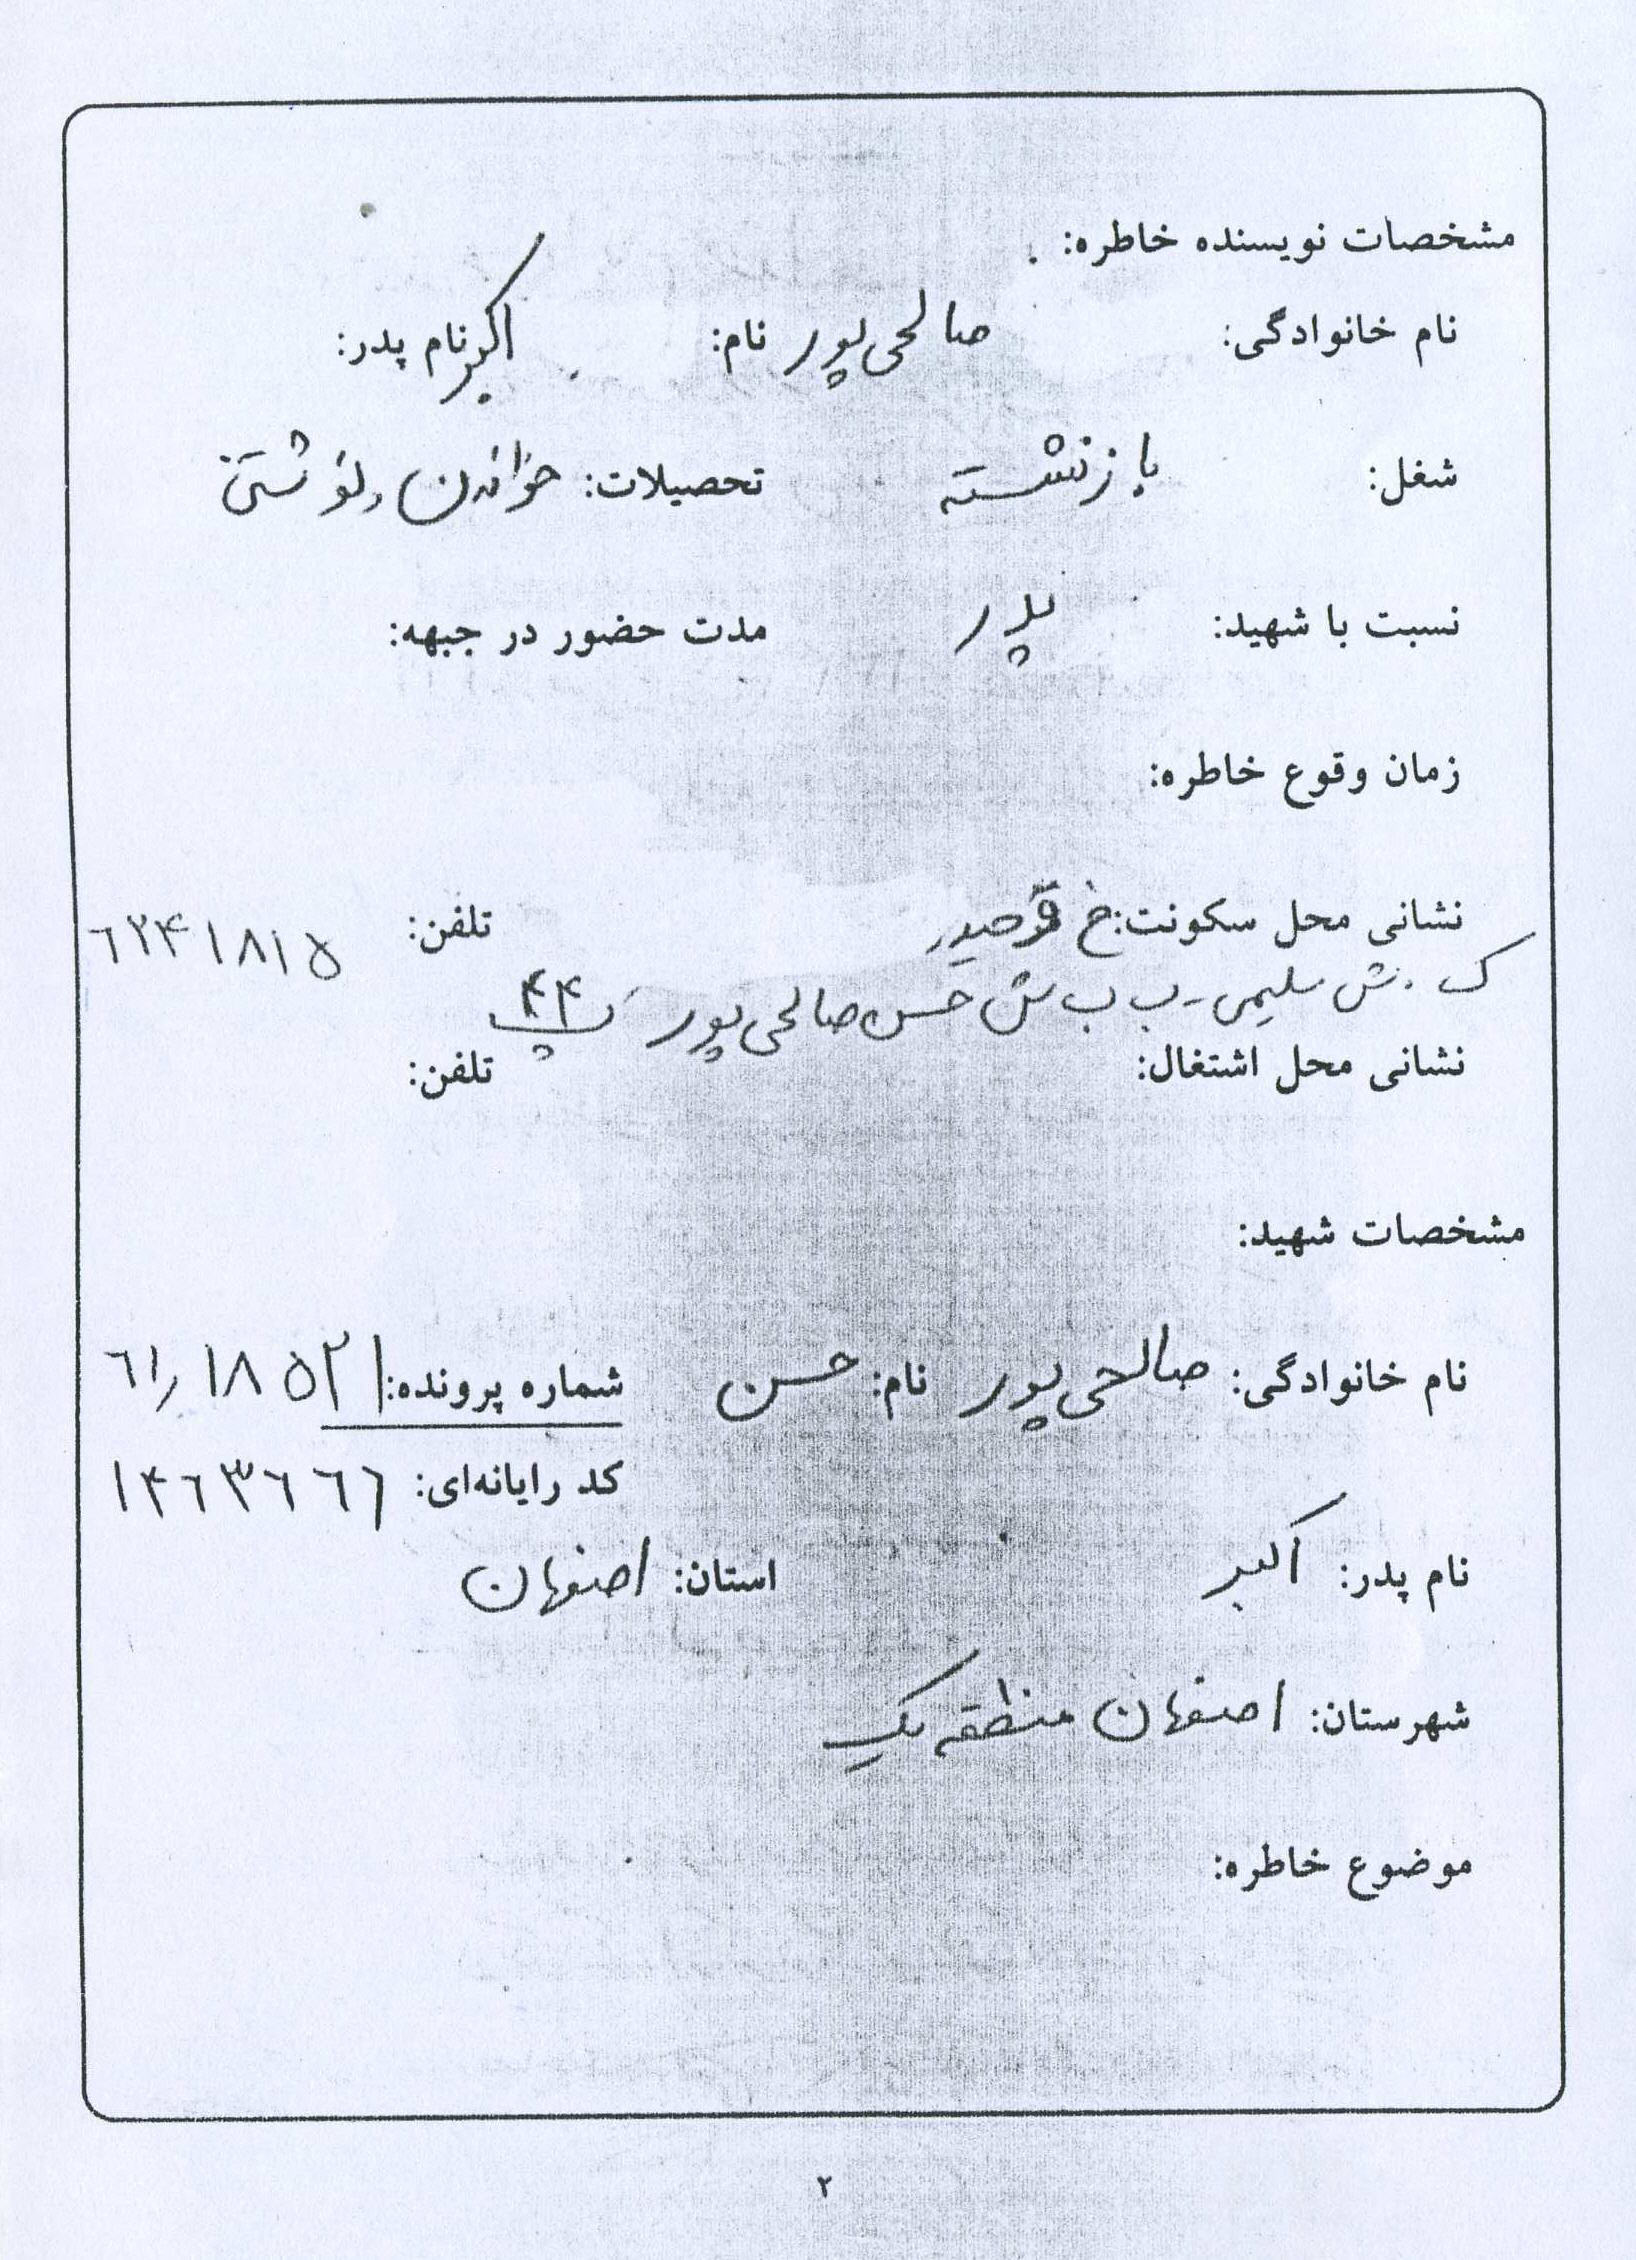 مشخصات نویسنده خاطره:
نام خانوادگی: صالحی پور نام: اکبر نام پدر:
شغل: بازنشسته تحصیلات: خواندن و نوشتنی
نسبت با شهید: پدر مدت حضور در جبهه:
زمان وقوع خاطره:
نشانی محل سکونت: خ تلفن: ۶۲۴۱۸۱۵
ک ش سلیمی - ب ب ش حسن صالحی پور پ ۴۴
نشانی محل اشتغال: تلفن:
مشخصات شهید:
نام خانوادگی: صالحی پور نام: حسن شماره پرونده: ۶۱٫۱۸۵۲۱
کد رایانه‌ای: ۱۴۶۳۶۶۶
نام پدر: اکبر استان: اصفهان
شهرستان: اصفهان منطقه یک
موضوع خاطره:
۲